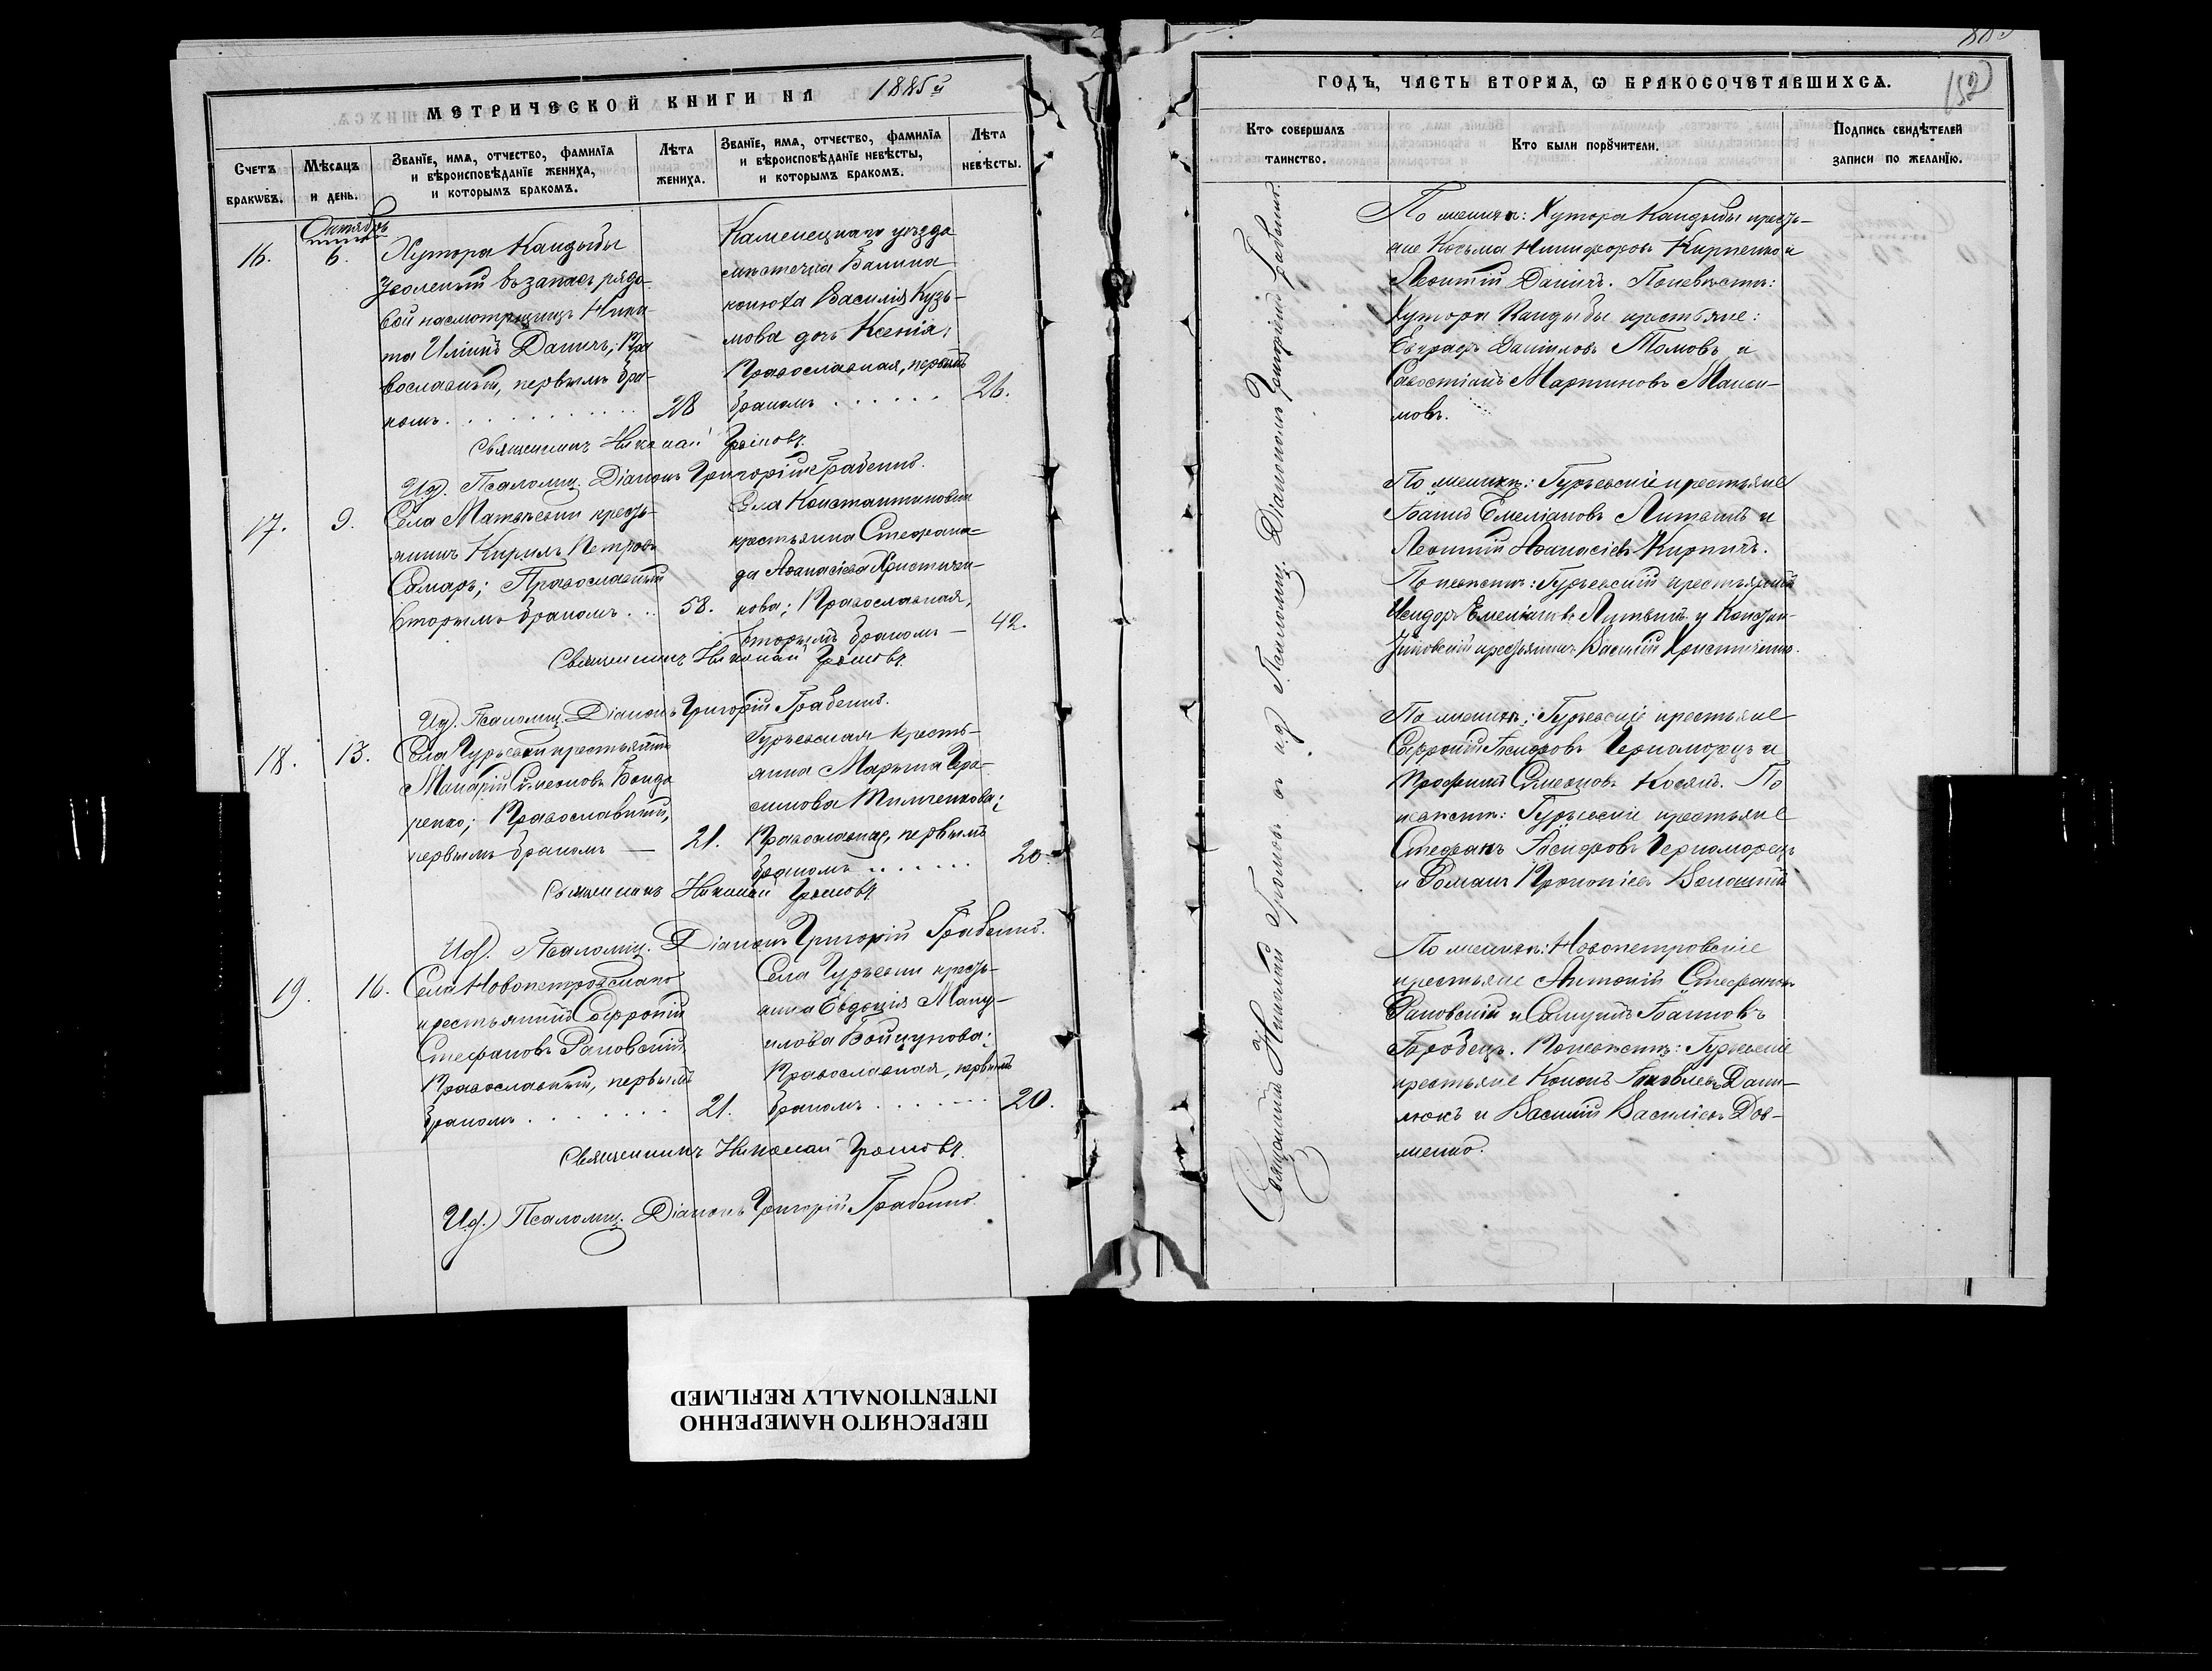 МЕТРИЧЕСКОЙ КНИГИ НА 1885й
Счетъ браковъ.
Мѣсяцъ и день.
Званїе, имя, отчество, фамилїя
и вѣроисповѣданїе жениха,
и которымъ бракомъ.
Лѣта
жениха.
Званїе, имя, отчество, фамилїя
и вѣроисповѣданїе невѣсты,
и которымъ бракомъ.
Лѣта
невѣсты.
Октябрь
16.
6.
Хутора Кандыбы
уволеный въ запасъ рядо-
вой
Ники-
та Иліинъ Даничъ; Пра
вославный, первымъ бра-
комъ
28
Каменецкаго уѣзда
мѣстечка Балина
Василія Кузь-
мова дочь Ксенія;
Православная, первымъ
бракомъ
26.
Священникъ Николай Громовъ.
И.д. Псаломщ. Діаконъ Григорій Грабенко.
17.
9.
Села Матвѣевки кресть-
янинъ Кирилъ Петровъ
Самаръ; Православный
вторымъ бракомъ
58.
Села Константиновки
крестьянка Стефани-
да Аѳанасіева Христичен-
кова; Православная,
вторымъ бракомъ —
42.
Священникъ Николай Громовъ.
И.д. Псаломщ. Діаконъ Григорій Грабенко.
18.
13.
Села Гурьевки крестьянинъ
Макарій Симеоновъ Бонда
ренко; Православный,
первымъ бракомъ —
21.
Гурьевская кресть-
янка Марѳина Гера-
симова Тимченкова;
Православная, первымъ
бракомъ
20.
Священникъ Николай Громовъ.
И.д. Псаломщ. Діаконъ Григорій Грабенко.
19.
16.
Села Новопетровскаго
крестьянинъ Софроній
Стефановъ Раковскій
Православный, первымъ
бракомъ
21.
Села Гурьевки кресть-
янка Евдокія Ману-
илова Бойцунова;
Православная, первымъ
бракомъ
20.
Священникъ Николай Громовъ.
И.д. Псаломщ. Діаконъ Григорій Грабенко.
ГОДЪ, ЧАСТЬ ВТОРАЯ, Ѡ БРАКОСОЧЕТАВШИХСЯ.
152
Кто совершалъ
таинство.
Кто были порꙋчители.
Подпись свидѣтелей
записи по желанїю.
Священникъ Николай Громовъ съ и.д. Псаломщ. Діакономъ Григоріемъ Грабенко.
По женихѣ: Хутора Кандыбы кресть-
яне Косьма Никифоровъ Кирпенко и
Леонтій Даничъ. По невѣстѣ:
Хутора Кандыбы крестьяне:
Евграфъ Даниловъ Томовъ и
Савостіанъ Мартиновъ Макси-
мовъ.
По женихѣ: Гурьевскіе крестьяне
Іоаннъ Емеліановъ Литвинъ и
Леонтій Аѳанасіевъ Кирпичъ.
По невѣстѣ: Гурьевскій крестьянинъ
Исидоръ Емеліановъ Литвинъ и Констан-
тиновскій крестьянинъ Василій Христиченко.
По женихѣ: Гурьевскіе крестьяне
Софроній Іосифовъ Черноморецъ и
Трофимъ Симеоновъ Косякъ. По
невѣстѣ: Гурьевскіе крестьяне
Стефанъ Іосифовъ Черноморецъ
и Романъ Прокопіевъ
По женихѣ: Новопетровскіе
крестьяне Антоній Стефановъ
Раковскій и Самуилъ Іоанновъ
Городецъ. По невѣстѣ: Гурьевскіе
крестьяне Кононъ Іаковлевъ Дани-
люкъ и Василій Василіевъ Дов-
женко.
ПЕРЕСНЯТО НАМЕРЕННО
INTENTIONALLY REFILMED